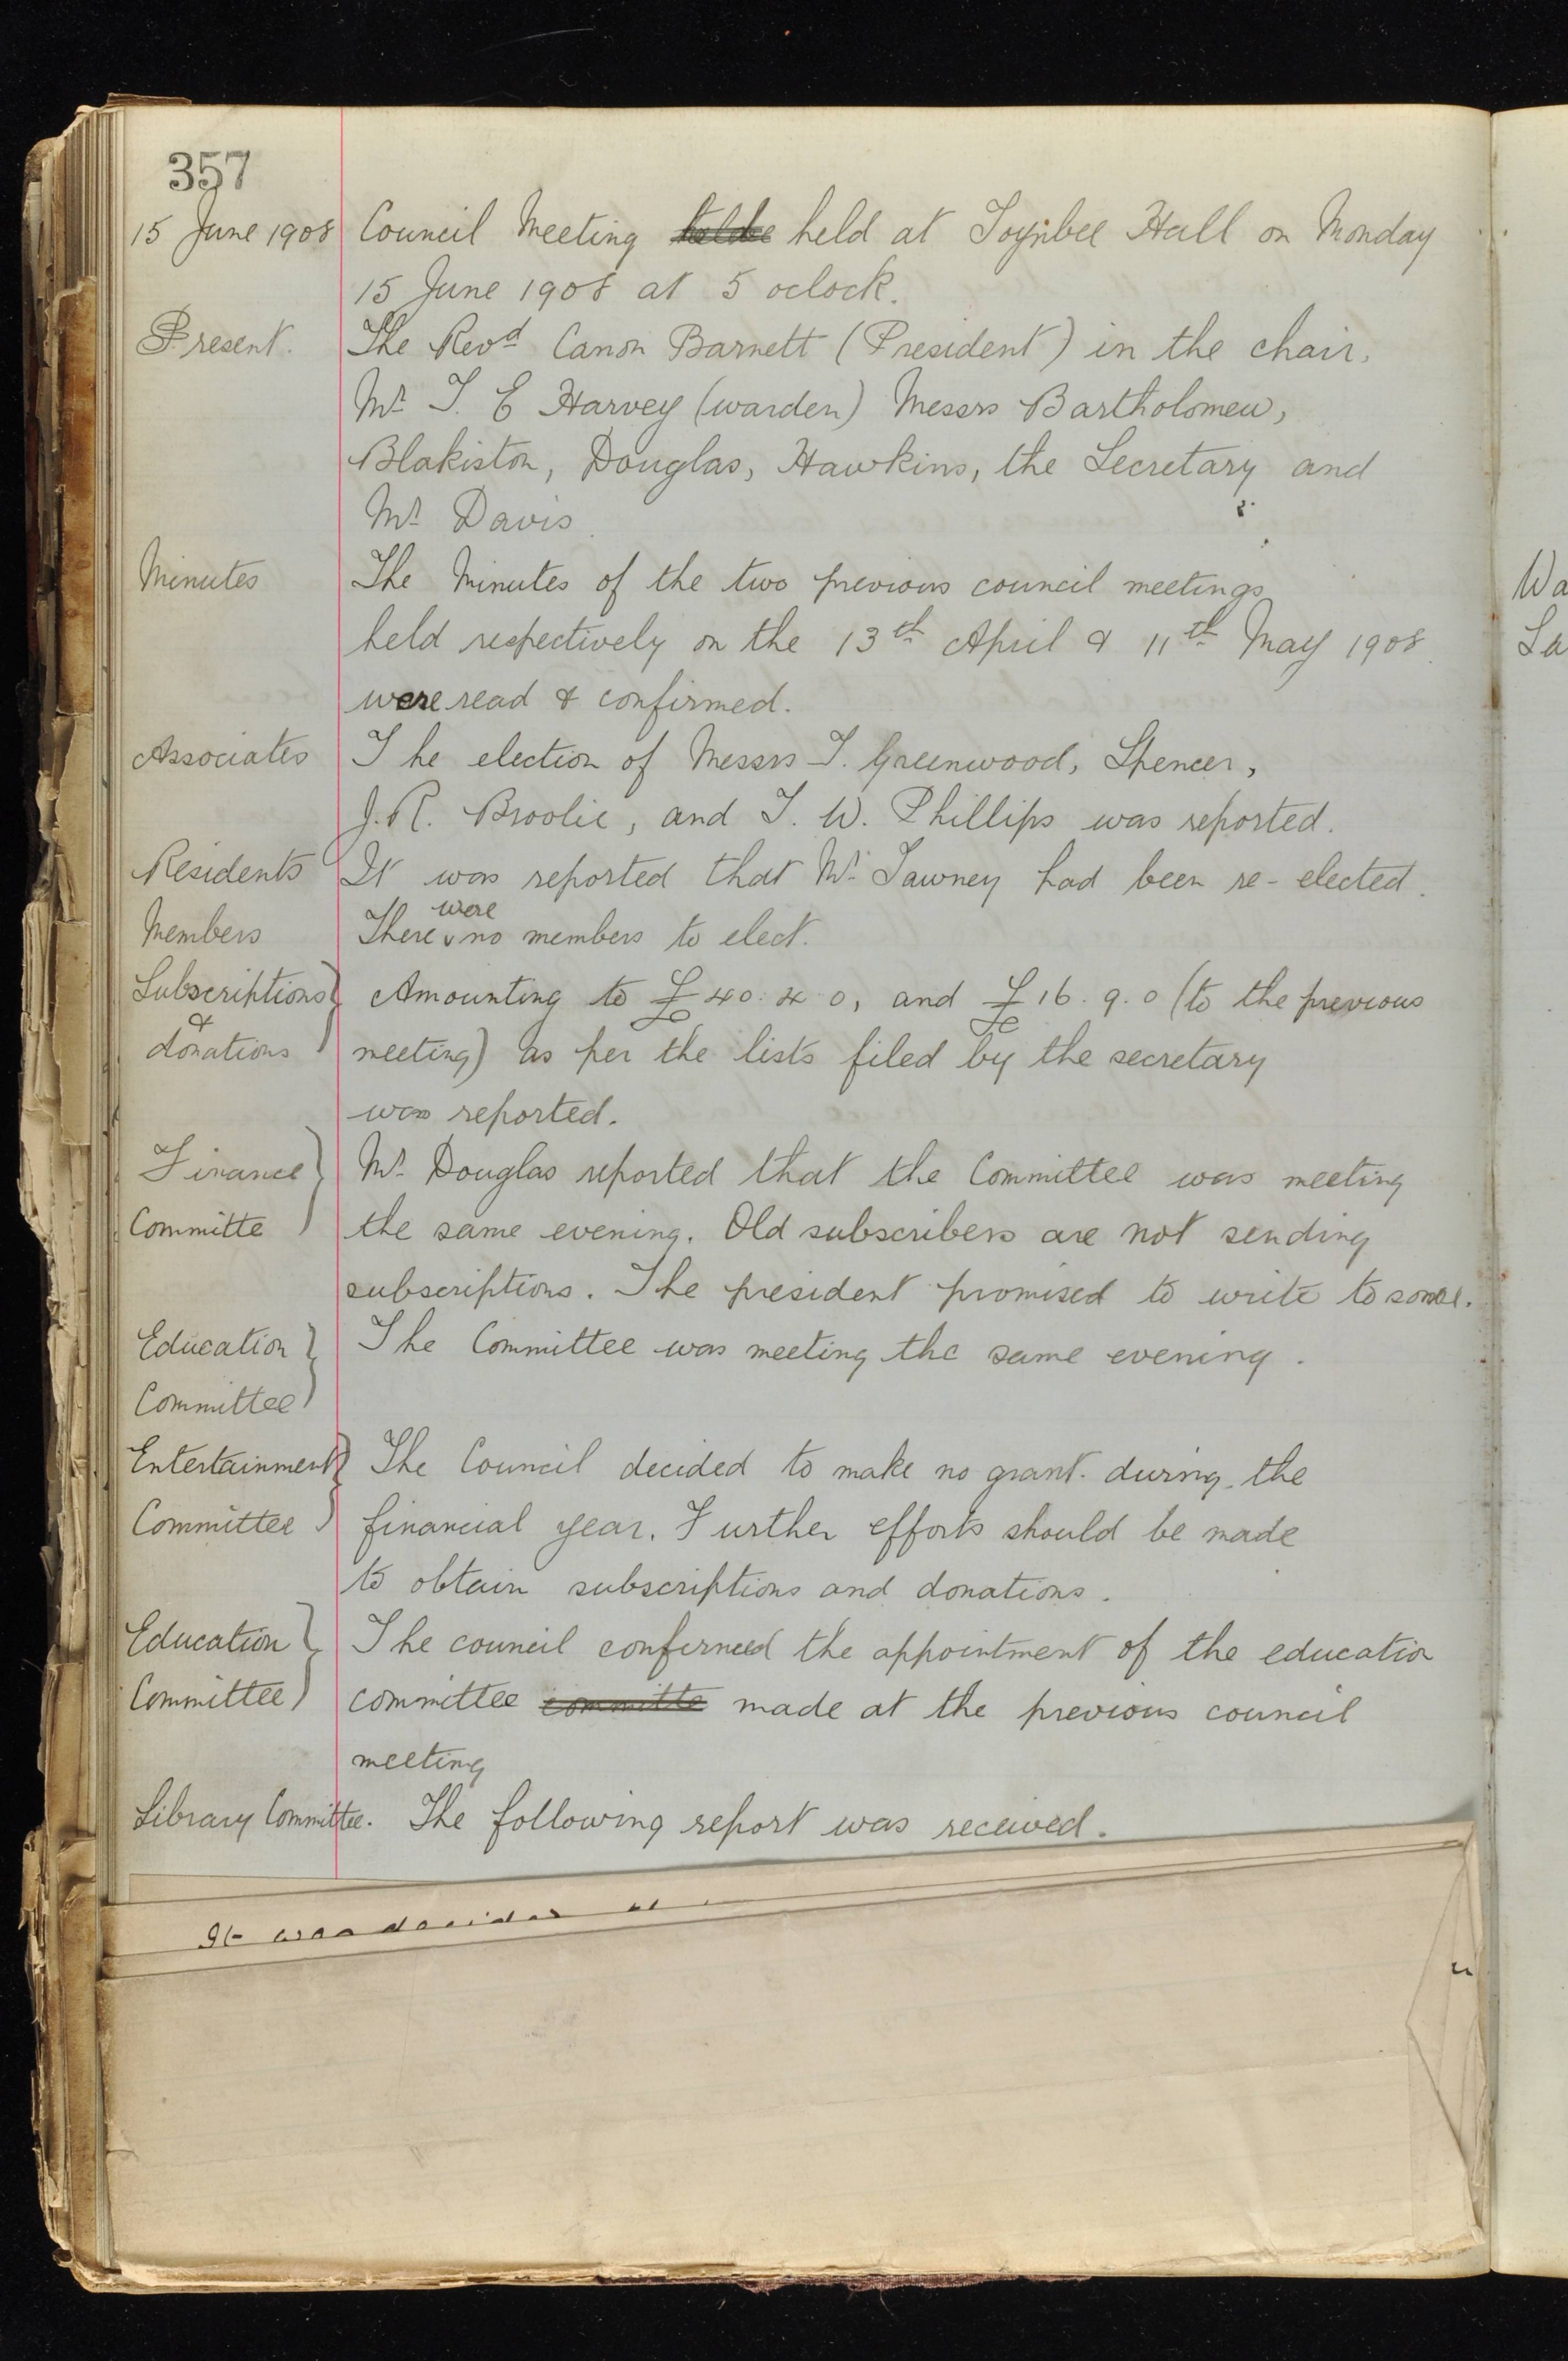 357
15 June 1908 Council Meeting held at Toynbee Hall on Monday
15 June 1908 at 5 oclock.
Present. The Revd Canon Barnett (President) in the chair.
Mr T. E Harvey (warden) Messrs Bartholomew,
Blakiston, Douglas, Hawkins, the Secretary and
Mr Davis
Minutes The Minutes of the two previous council meetings
held respectively on the 13th April & 11th May 1908
were read & confirmed.
Associates The election of Messrs T. Greenwood, Spencer,
J. R. and T. W. Phillips was reported.
Residents It was reported that Mr Tawney had been re-elected.
Members There were no members to elect.
Subscriptions Amounting to £40. 4. 0, and £16. 9. 0 (to the previous
& donations meeting) as per the lists filed by the secretary
was reported.
Finance Mr Douglas reported that the Committee was meeting
Committe the same evening. Old subscribers are not sending
subscriptions. The president promised to write to some.
Education The Committee was meeting the same evening.
Committee
Entertainment The Council decided to make no grant during the
Committee financial year. Further efforts should be made
to obtain subscriptions and donations.
Education The council confirmed the appointment of the education
Committee committee committe made at the previous council
meeting
Library Committee. The following report was received.
It was decided
Wa
La